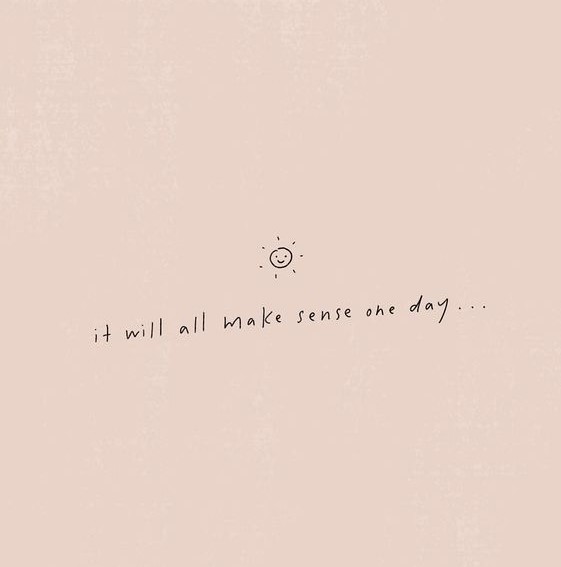 it will all make sense one day...